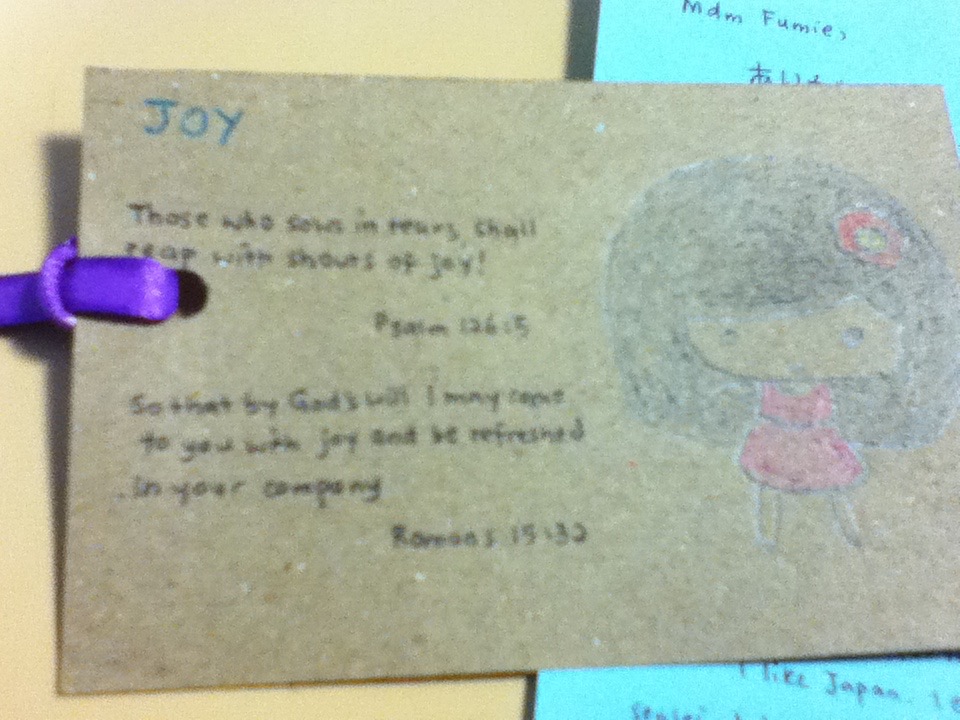 Mdm Fumie,
JOY
Those who sows in tears, shall
reap with shouts of joy!
Psalm 126:5
So that by God's will I may come
to you with joy and be refreshed
in your company
Romans 15:32
I like Japan. I
sensei